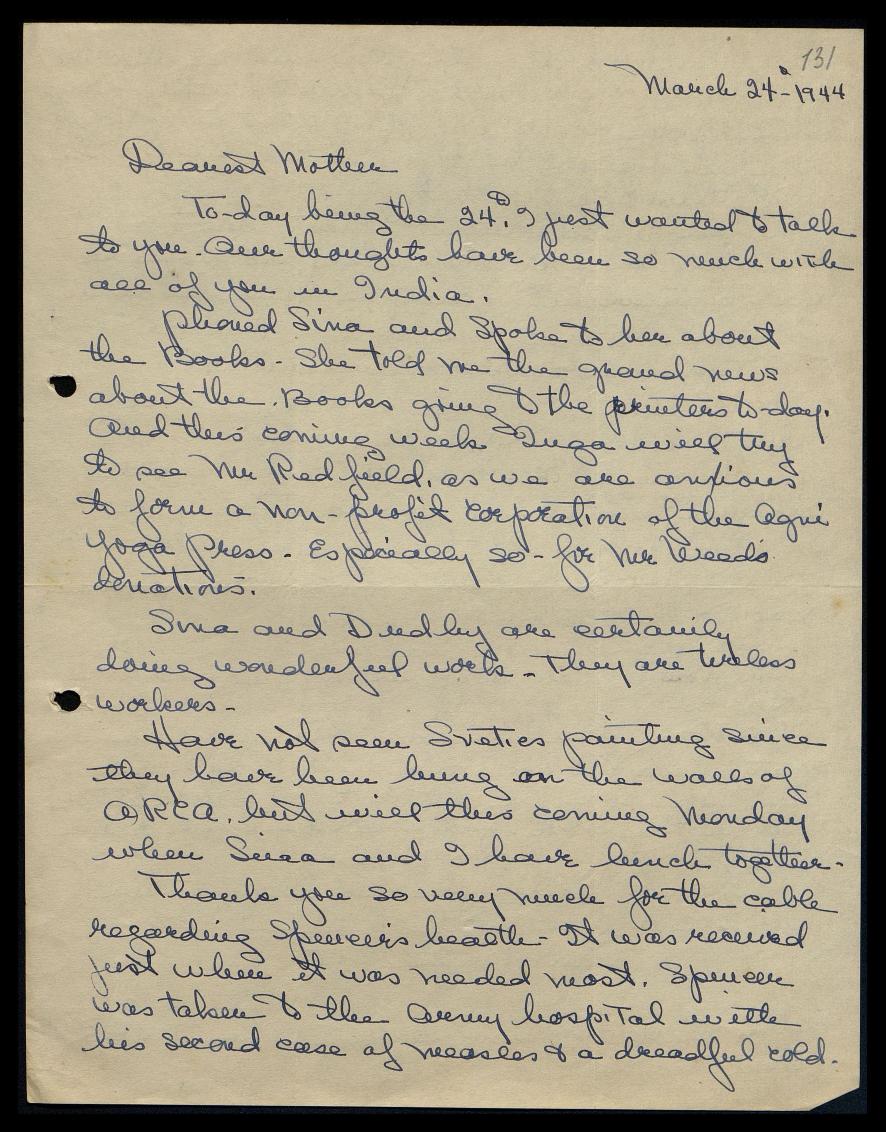 131
March 24th-1944
Dearest Mother
To-day being the 24th, I just wanted to talk
to you. Our thoughts have been so much with
all of you in India.
Phoned Sina and spoke to her about
the Books - She told me the grand news
about the Books going to the printers to-day.
And this coming week Inga will try
to see Mr Redfield, as we are anxious
to form a non-profit corporation of the Agni
Yoga Press - Especially so - for Mr Weed's
donations.
Sina and Dudley are certainly
doing wonderful work - They are tireless
workers -
Have not seen Sveties painting since
they have been hung on the walls of
ARCA, but will this coming Monday
when Sina and I have lunch together -
Thank you so very much for the cable
regarding Spencer's health - It was received
just when it was needed most. Spencer
was taken to the Army hospital with
his second case of measles & a dreadful cold.